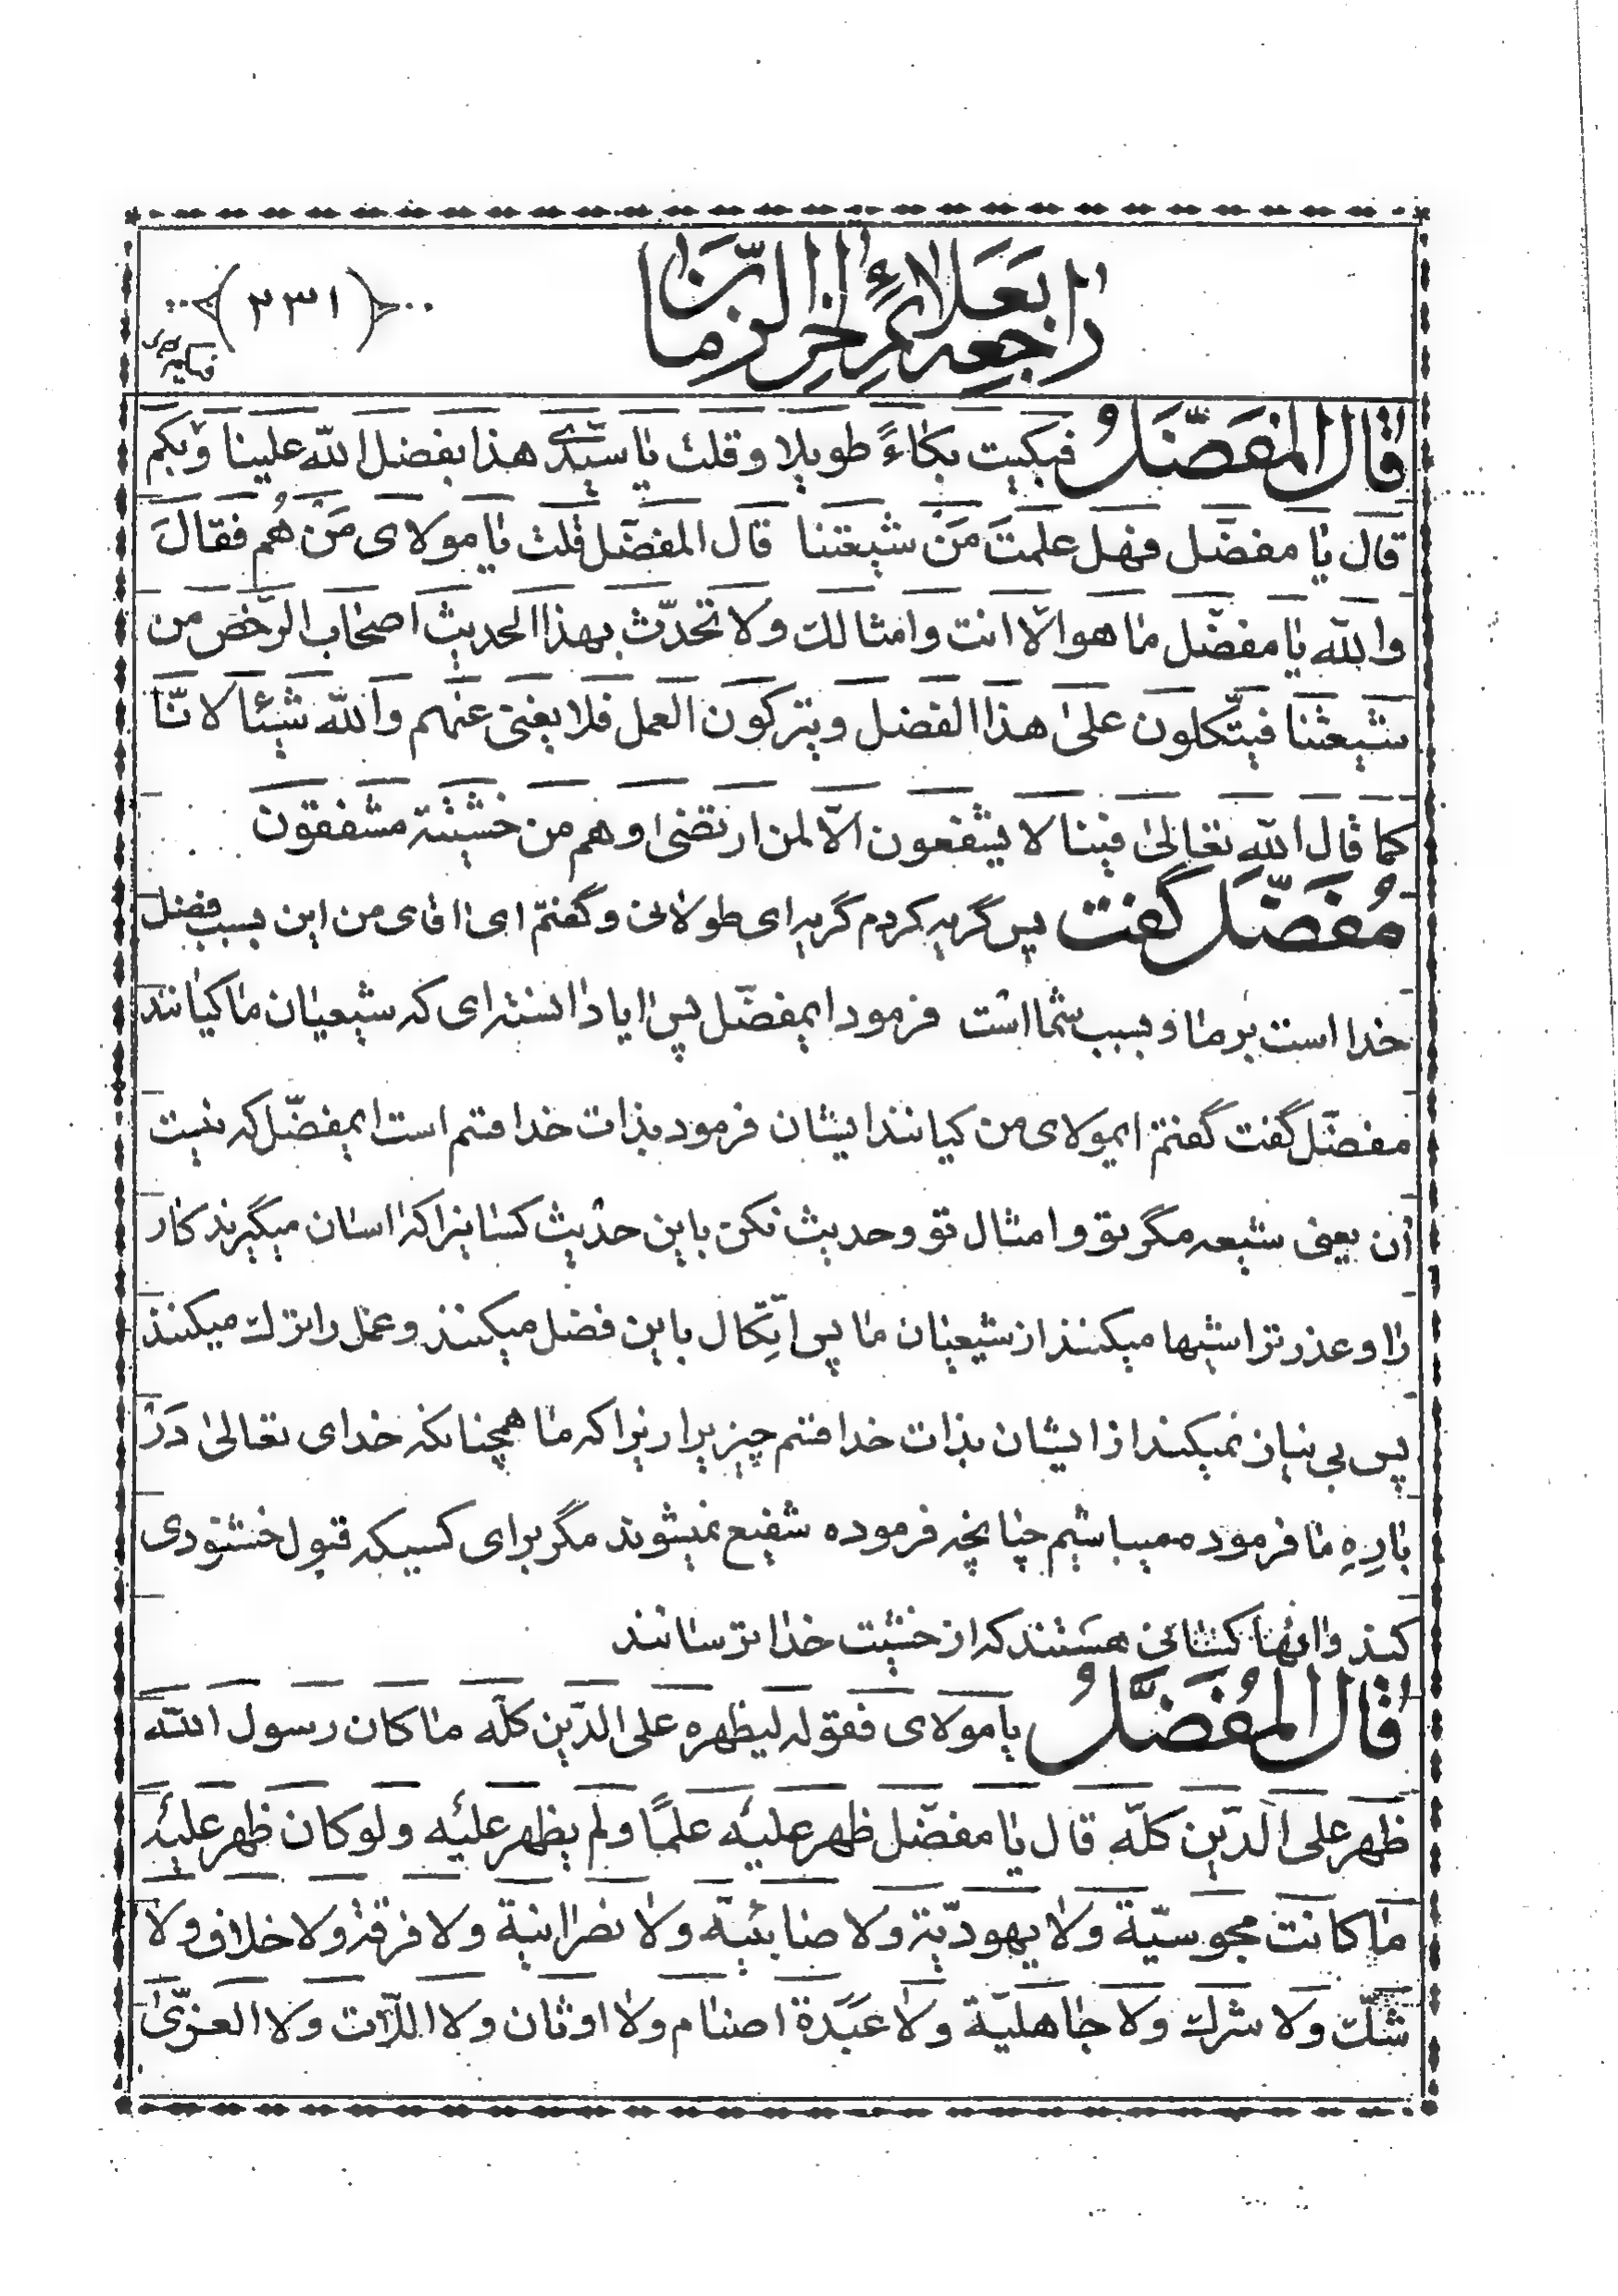 راجعه بعلائم اخر الزمان
(٢٣١)
قال المفضل فبكيت بكاءً طويلا وقلت يا سيّدى هذا بفضل الله علينا وبكم
قال يا مفضّل فهل علمتَ مَن شيعتنا قال المفضّل قلت يا مولاى مَن هُم فقالَ
والله يا مفضّل ما هو الّا انت وامثالك ولا تحدّث بهذا الحديث اصحاب الرّخص من
شيعتنا فيتّكلون على هذا الفضل ويتركون العمل فلا يغنى عنهم والله شيئا لانّنا
كما قال الله تعالى فينا لا يشفعون الّا لمن ارتضى وهم من خشيته مشفقون
مُفَضّل گفت پس گريه كردم گريه اى طولانى و گفتم اى اقاى من اين بسبب فضل
خدا است بر ما و بسبب شما است فرمود ايمفضّل پس ايا دانسته اى كه شيعيان ما كيانند
مفضّل گفت گفتم ايمولاى من كيانند ايشان فرمود بذات خدا قسم است ايمفضّل كه نيست
آن يعنى شيعه مگر تو و امثال تو و حديث نكن باين حديث كسانيرا كه اسان ميگيرند كار
را و عذر تراشيها ميكنند از شيعيان ما پس اتّكال باين فضل ميكنند و عمل را ترك ميكنند
پس بى نياز نميكند از ايشان بذات خدا قسم چيزيرا زيرا كه ما همچنانكه خداى تعالى دَر
بارهِ ما فرموده ميباشيم چنانچه فرموده شفيع نميشوند مگر براى كسيكه قبول خشنودى
كند و انها كسانى هستند كه از خشيت خدا ترسانند
قال المُفَضّل يا مولاى فقوله ليظهره على الدّين كلّه ما كان رسول الله
ظهر على الدّين كلّه قال يا مفضّل ظهر عليه علمًا ولم يظهر عليه ولو كان ظهر عليه
ما كانت مجوسيّة ولا يهوديّة ولا صابئيّه ولا نصرانية ولا فرقة ولا خلاف ولا
شكّ ولا شرك ولا جاهليّة ولا عَبَدَة اصنام ولا اوثان ولا اللّات ولا العزّى